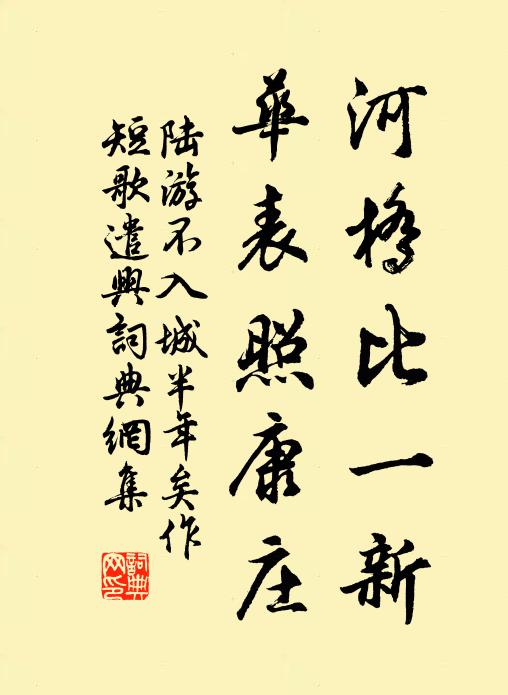 河橋比一新
華表照康庄
陆游不入城半年矣作
短歌遣興詞典網集
詞典
网印